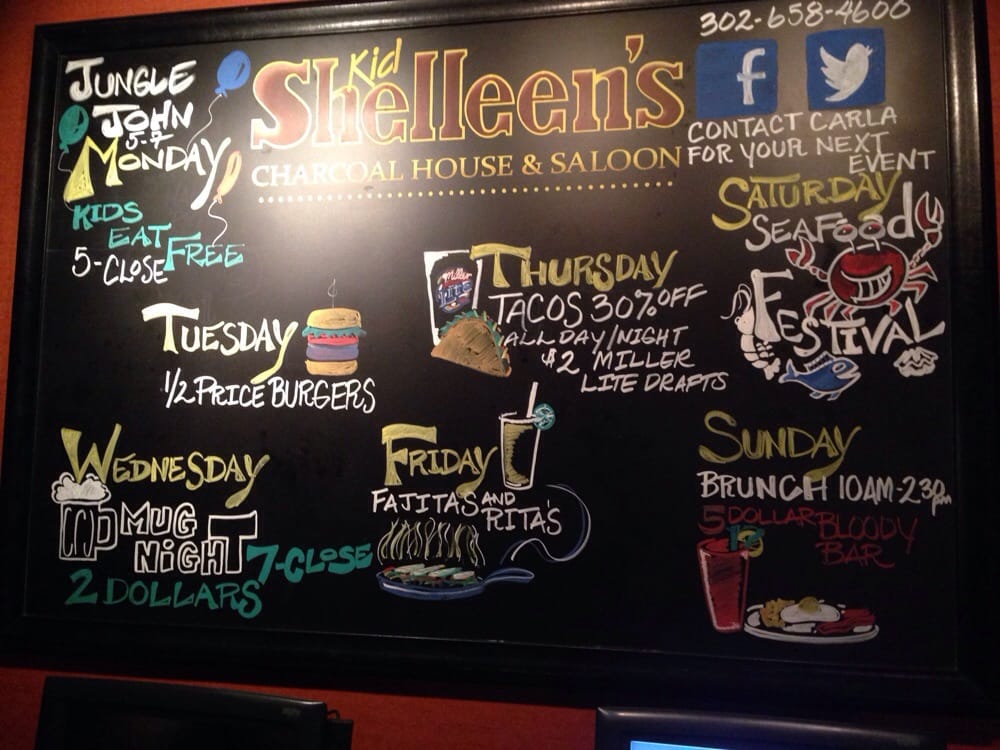 Kid
Shelleen's
CHARCOAL HOUSE & SALOON
302-658-4600
f
CONTACT CARLA
FOR YOUR NEXT
EVENT
JUNGLE
JOHN
5-7
MONDAY
KIDS
EAT
FREE
5-CLOSE
TUESDAY
1/2 PRICE BURGERS
WEDNESDAY
MUG
NIGHT
7-CLOSE
2 DOLLARS
Miller
Lite
THURSDAY
TACOS 30% OFF
ALL DAY/NIGHT
$2 MILLER
LITE DRAFTS
FRIDAY
FAJITAS AND
RITA'S
SATURDAY
SEAFOOD
FESTIVAL
SUNDAY
BRUNCH 10AM-2:30pm
5 DOLLAR BLOODY
BAR